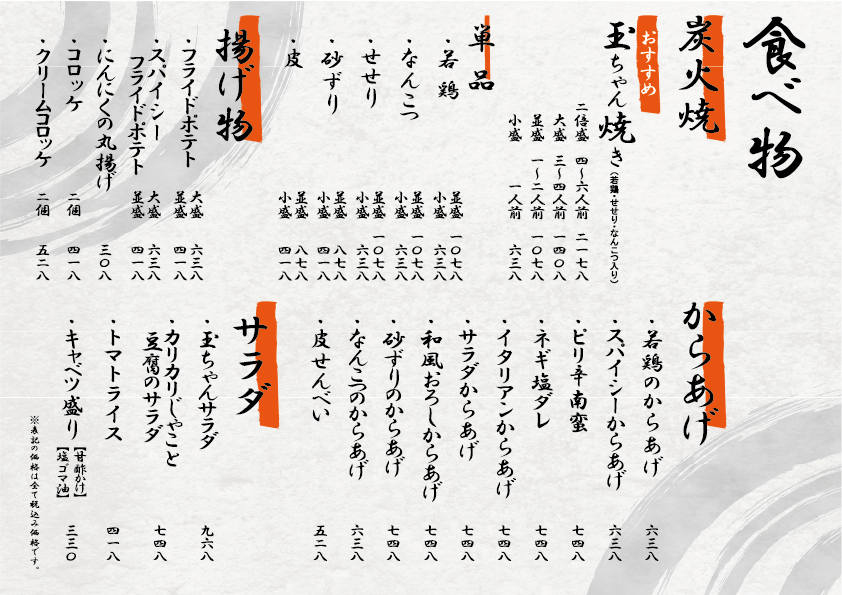 食べ物
炭火焼
おすすめ
玉ちゃん焼き（若鶏・せせり・なんこつ入り）
二倍盛 四〜六人前 二一七八
大盛 三〜四人前 一四〇八
並盛 一〜二人前 一〇七八
小盛 一人前 六三八
単品
・若鶏 並盛 一〇七八
小盛 六三八
・なんこつ 並盛 一〇七八
小盛 六三八
・せせり 並盛 一〇七八
小盛 六三八
・砂ずり 並盛 八七八
小盛 四一八
・皮 並盛 八七八
小盛 四一八
揚げ物
・フライドポテト 大盛 六三八
並盛 四一八
・スパイシー
フライドポテト 大盛 六三八
並盛 四一八
・にんにくの丸揚げ 三〇八
・コロッケ 二個 四一八
・クリームコロッケ 二個 五二八
からあげ
・若鶏のからあげ 六三八
・スパイシーからあげ 六三八
・ピリ辛南蛮 七四八
・ネギ塩ダレ 七四八
・イタリアンからあげ 七四八
・サラダからあげ 七四八
・和風おろしからあげ 七四八
・砂ずりのからあげ 七四八
・なんこつのからあげ 六三八
・皮せんべい 五二八
サラダ
・玉ちゃんサラダ 九六八
・カリカリじゃこと
豆腐のサラダ 七四八
・トマトライス 四一八
・キャベツ盛り【甘酢かけ】
【塩ゴマ油】 三三〇
※表記の価格は全て税込み価格です。